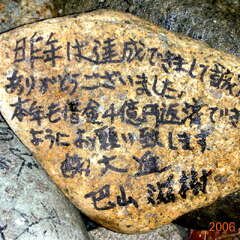 昨年は達成できまして誠
ありがとうございました。
本年も借金4億円返済でいま
ようにお願い致します
巴山 滋樹
2006